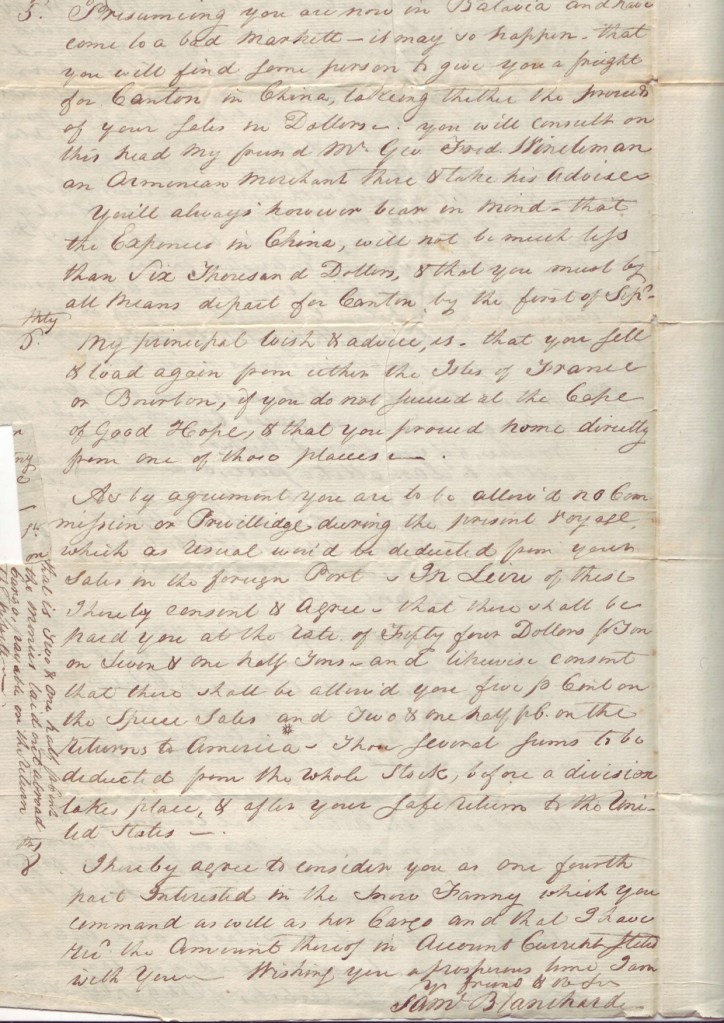 5. Presumeing you are now in Batavia and have
come to a bad Markett - it may so happen - that
you will find some person to give you a freight
for Canton in China, takeing thether the proceeds
of your Sales in Dollars - you will consult on
this head my friend Mr. Geo Fred.
an Armenean Merchant there & take his Advise -
You'll always however bear in Mind - that
the Expences in China, will not be much less
than Six Thousand Dollars, & that you must by
all Means depart for Canton by the first of Sepr.
6. My principal wish & advice, is - that you sell
& load again from either the Isles of France
or Bourbon, if you do not succeed at the Cape
of Good Hope, & that you proceed home directly
from one of those places -
As by agreement you are to be allow'd no Com
mission or Privillidge during the present Voyage,
which as Usual wou'd be deducted from your
Sales in the foreign Port - In Leiu of these
I hereby consent & Agree - that there shall be
paid you at the rate of Fifty four Dollars p Ton
on Seven & one half Tons - and likewise consent
that there shall be allow'd you five p Cent on
the Specie Sales and Two & one half pC. on the
#
Returns to America - These several Sums to be
deducted from the Whole Stock, before a division
takes place, & after your safe return to the Uni-
ted States -
I hereby agree to consider you as one fourth
part Interested in the Snow Fanny which you
command as well as her Cargo and that I have
recd the Amount thereof in Account Current
with You - Wishing you a prosperous time I am
yr friend &
Saml Blanchard
that is Two & one half p Cent
on the monies laid out abroad in
Cargo, payable on the return